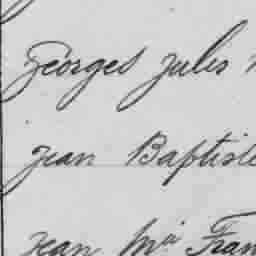 Georges Jules
Jean Baptiste
Jean Mia Fran